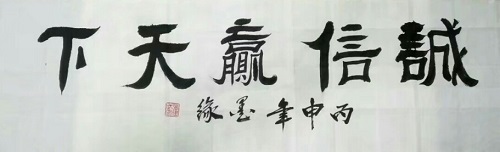 誠信贏天下
丙申年墨缘